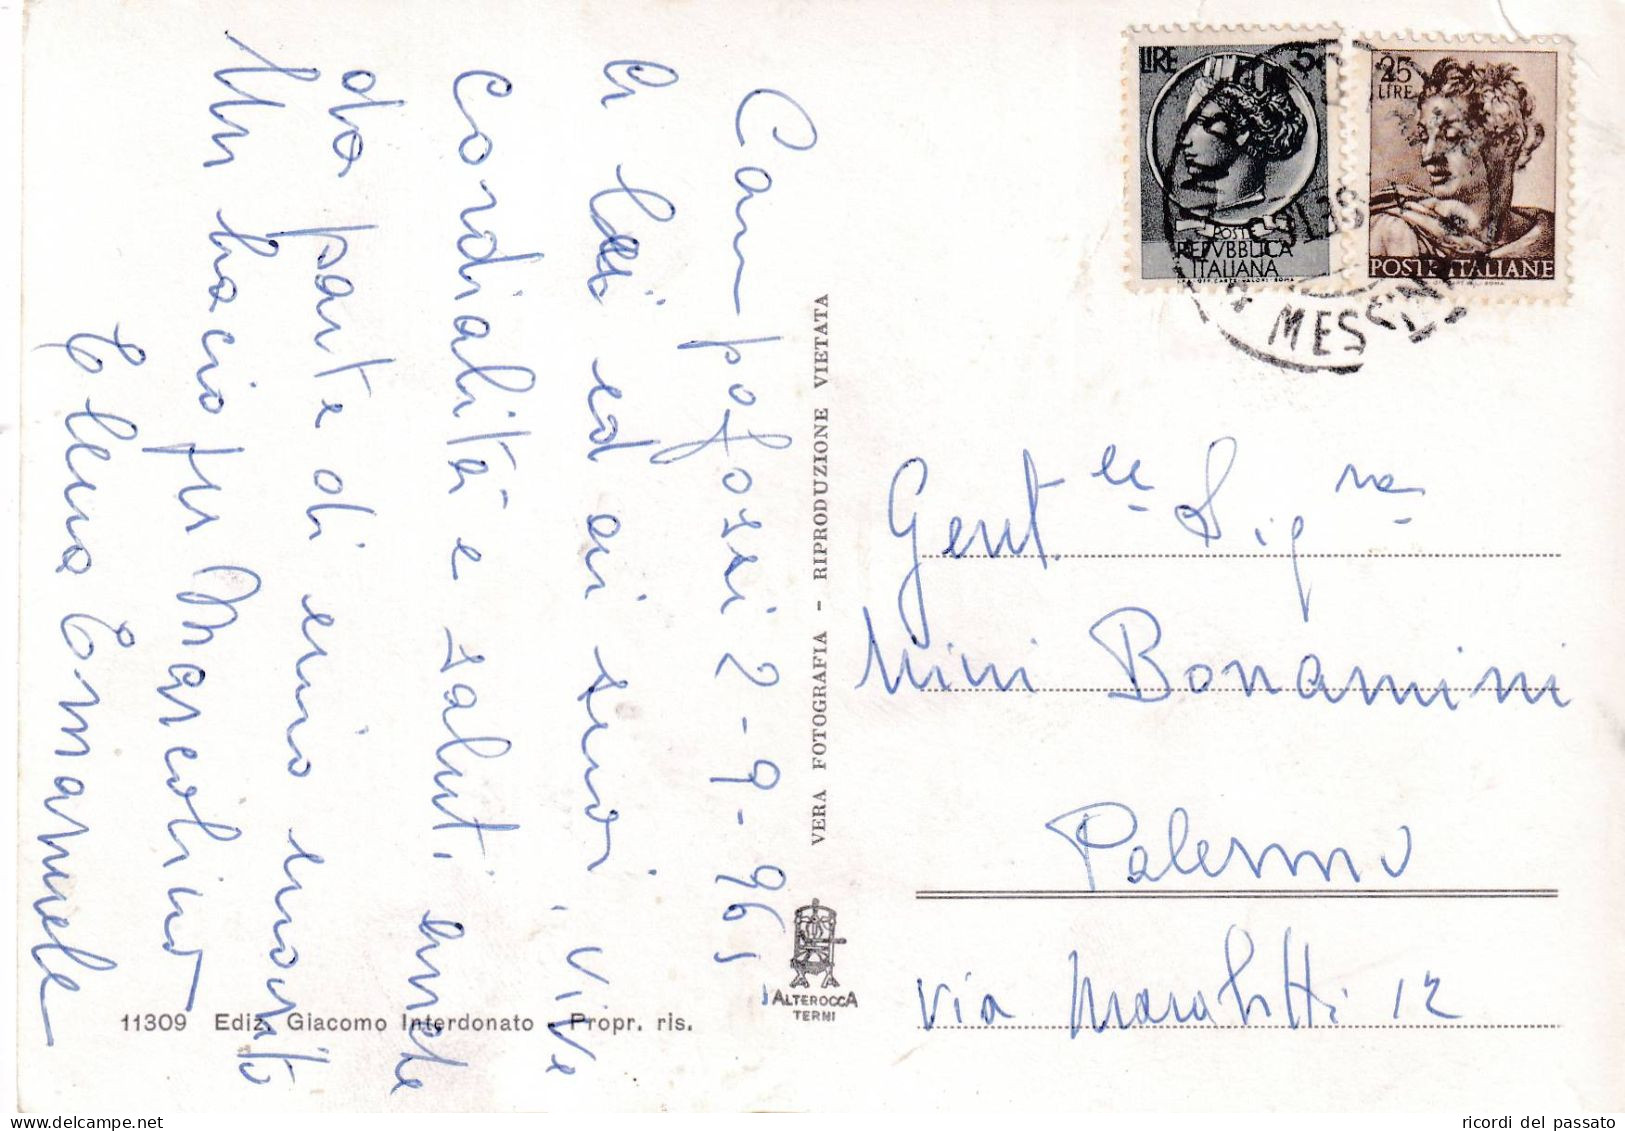 Campofossi 2-9-965
A lei ed ai suoi, vive
cordialità e saluti, anche
da parte di mio marito
Un bacio per Marcolino
Elena Emanuele
11309 Ediz. Giacomo Interdonato Propr. ris.
VERA FOTOGRAFIA - RIPRODUZIONE VIETATA
ALTEROCCA
TERNI
LIRE 5
POSTE
REPVBBLICA
ITALIANA
25
LIRE
POSTE ITALIANE
MESSINA
Gent.le Sig.na
Mini Bonamini
Palermo
via 12
ricordi del passato